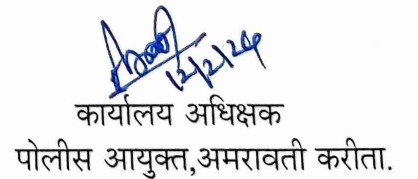 12/2/24
कार्यालय अधिक्षक
पोलीस आयुक्त,अमरावती करीता.